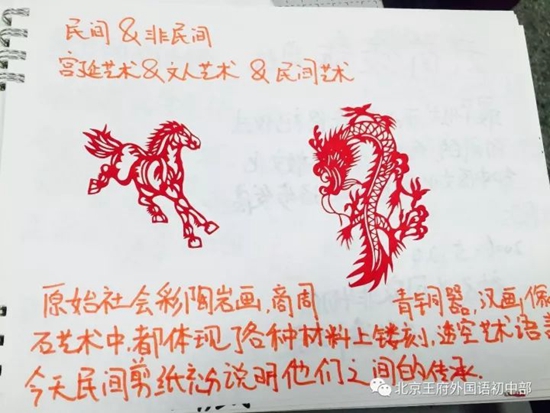 民间&非民间
宫廷艺术&文人艺术 &民间艺术
原始社会彩陶岩画,商周 青铜器,汉画像
石艺术中,都体现了各种材料上镂刻,透空艺术语言
今天民间剪纸充分说明他们之间的传承
北京王府外国语初中部